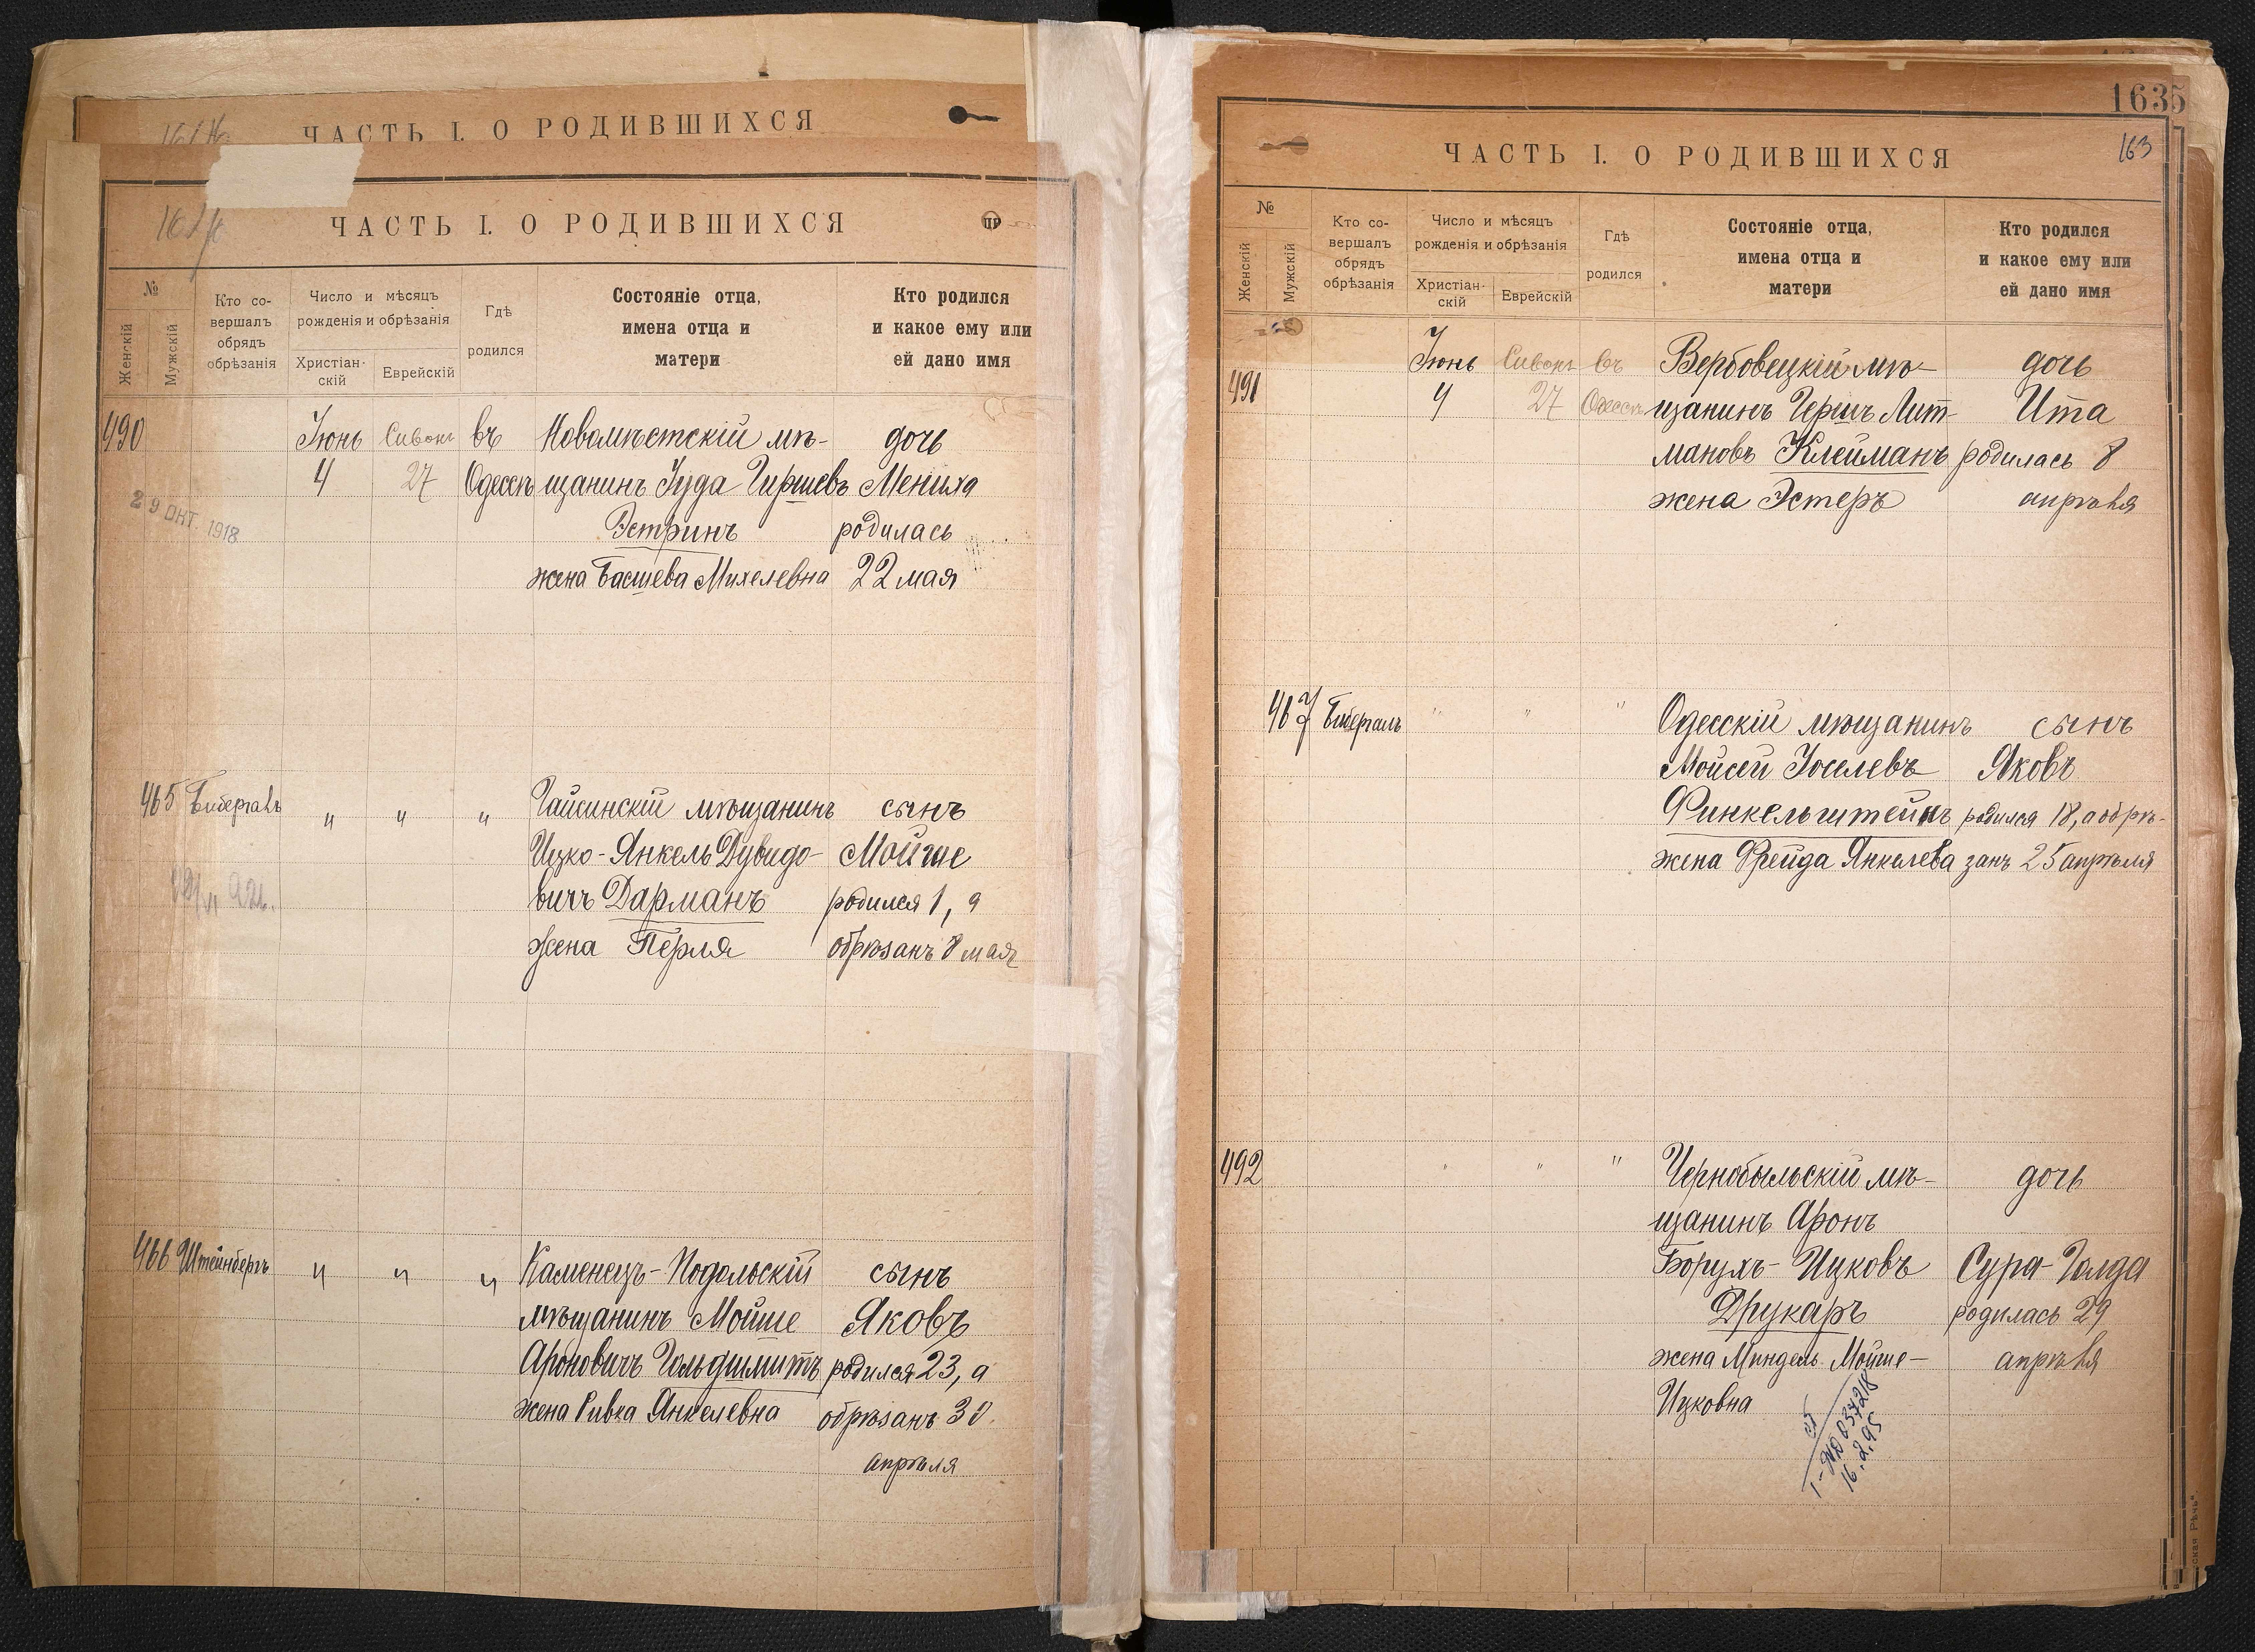 ЧАСТЬ I. О РОДИВШИХСЯ
ЧАСТЬ I. О РОДИВШИХСЯ
№
Женскій
Мужскій
Кто со-
вершалъ
обрядъ
обрѣзанія
Число и мѣсяцъ
рожденія и обрѣзанія
Христіан-
скій
Еврейскій
Гдѣ
родился
Состояніе отца,
имена отца и
матери
Кто родился
и какое ему или
ей дано имя
490 Іюнь Сивонъ въ Новомѣстскій мѣ- дочь
4 27 Одессѣ щанинъ Іуда Гиршевъ Мениха
29 ОКТ. 1918
Эстринъ родилась
жена Басшева Михелевна 22 мая
465 Бибергалъ " " " Гайсинскій мѣщанинъ сынъ
Ицко-Янкель Дувидо- Мойше
вичъ Дарманъ родился 1, а
жена Перля обрѣзанъ 8 мая
466 Штейнбергъ " " " Каменецъ-Подольскій сынъ
мѣщанинъ Мойше Яковъ
Ароновичъ Гольдшмитъ родился 23, а
жена Ривка Янкелевна обрѣзанъ 30
апрѣля
1635
163
ЧАСТЬ I. О РОДИВШИХСЯ
№
Женскій
Мужскій
Кто со-
вершалъ
обрядъ
обрѣзанія
Число и мѣсяцъ
рожденія и обрѣзанія
Христіан-
скій
Еврейскій
Гдѣ
родился
Состояніе отца,
имена отца и
матери
Кто родился
и какое ему или
ей дано имя
Іюнь Сивонъ въ Вербовецкій мѣ- дочь
491 4 27 Одессѣ щанинъ Гершъ Лит- Ита
мановъ Клейманъ родилась 8
жена Эстеръ апрѣля
467 Бибергалъ " " " Одесскій мѣщанинъ сынъ
Мойсей Іоселевъ Яковъ
Финкельштейнъ родился 18, а обрѣ-
жена Фрейда Янкелева занъ 25 апрѣля
492 " " " Чернобыльскій мѣ- дочь
щанинъ Аронъ
Борухъ-Ицковъ Сура-Голда
Друкаръ родилась 29
жена Миндель Мойше- апрѣля
Ицковна
16.2.95